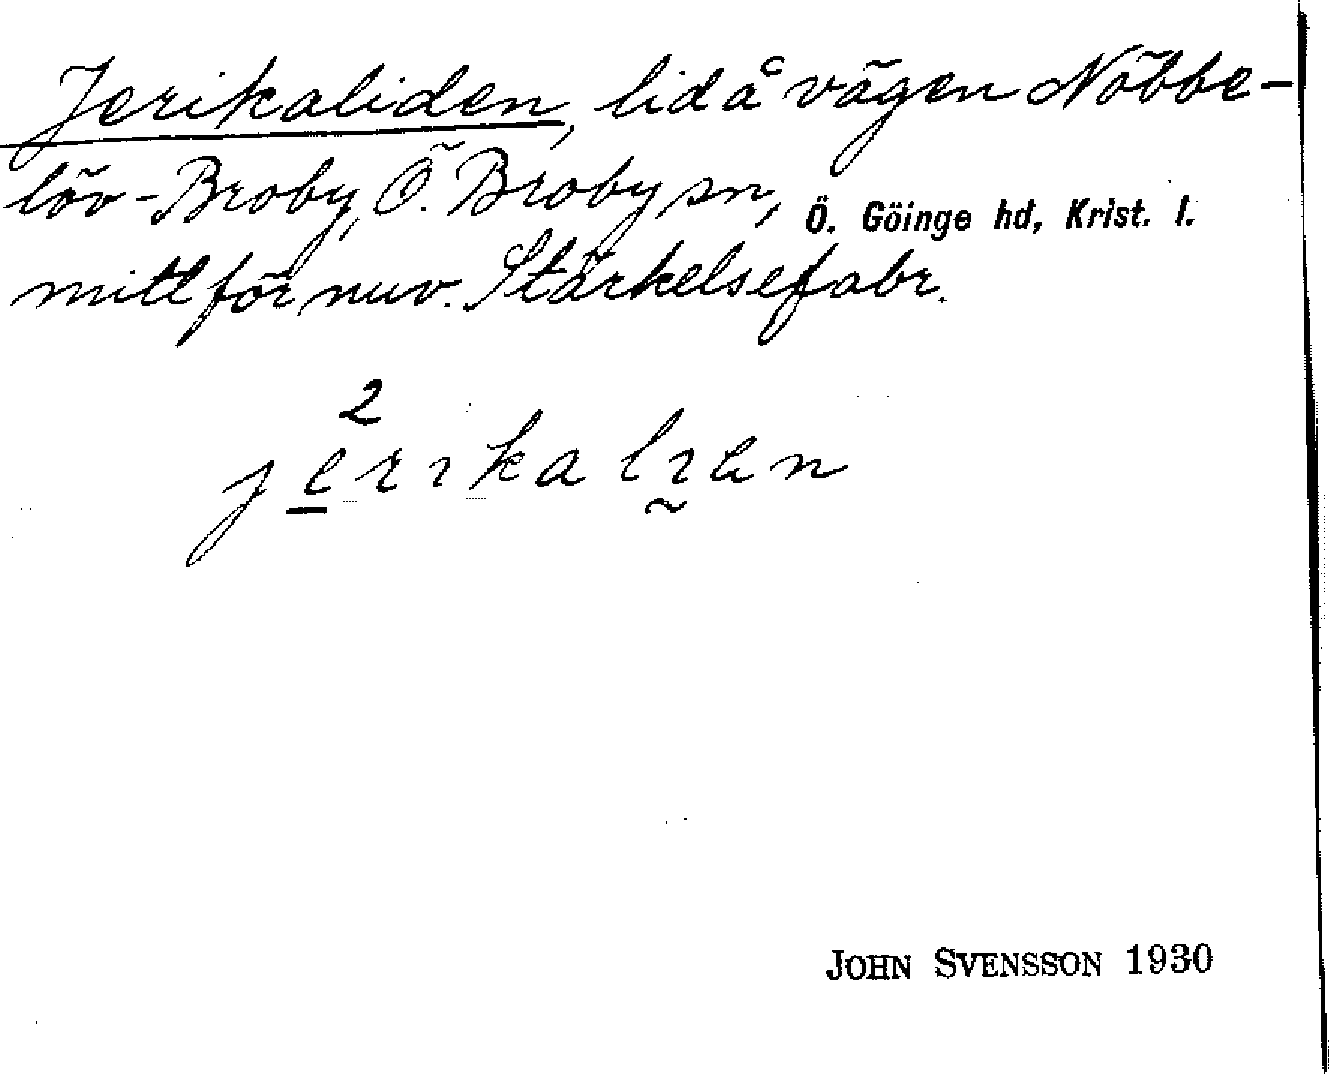 Jerikaliden, lid å vägen Nöbbe-
löv-Broby, Ö. Broby sn, Ö. Göinge hd, Krist. l.
mitt för nuv. Stärkelsefabr.
2
jerikalien
JOHN SVENSSON 1930